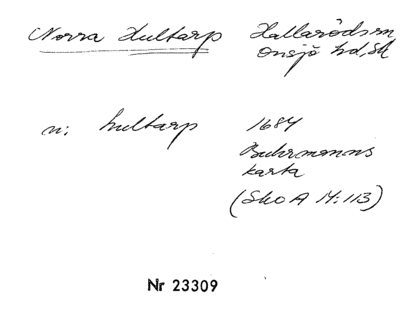 Norra Hultarp Hallaröds sn
Onsjö hd, Sk
n: hultarp 1684
Buhrmanns
karta
(Sko A 14:113)
Nr 23309